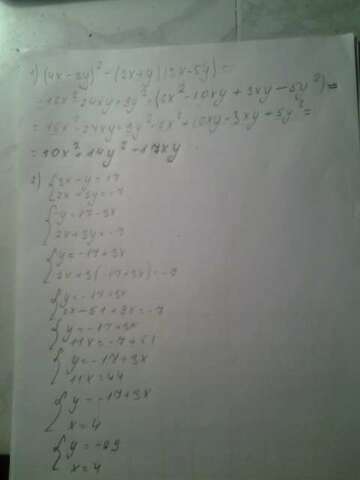 1) (4x-3y)² - (2x+y)(3x-5y)=
=16x²-24xy+9y²-(6x²-10xy+3xy-5y²)=
=16x²-24xy+9y²-6x²+10xy-3xy+5y²=
=10x²+14y²-17xy.
2) {3x-y=17
{2x+3y=-7
{y=17-3x
{2x+3y=-7
{y=-17+3x
{2x+3(-17+3x)=-7
{y=-17+3x
{2x-51+9x=-7
{y=-17+3x
{11x=-7+51
{y=-17+3x
{11x=44
{y=-17+3x
{x=4
{y=-29
{x=4